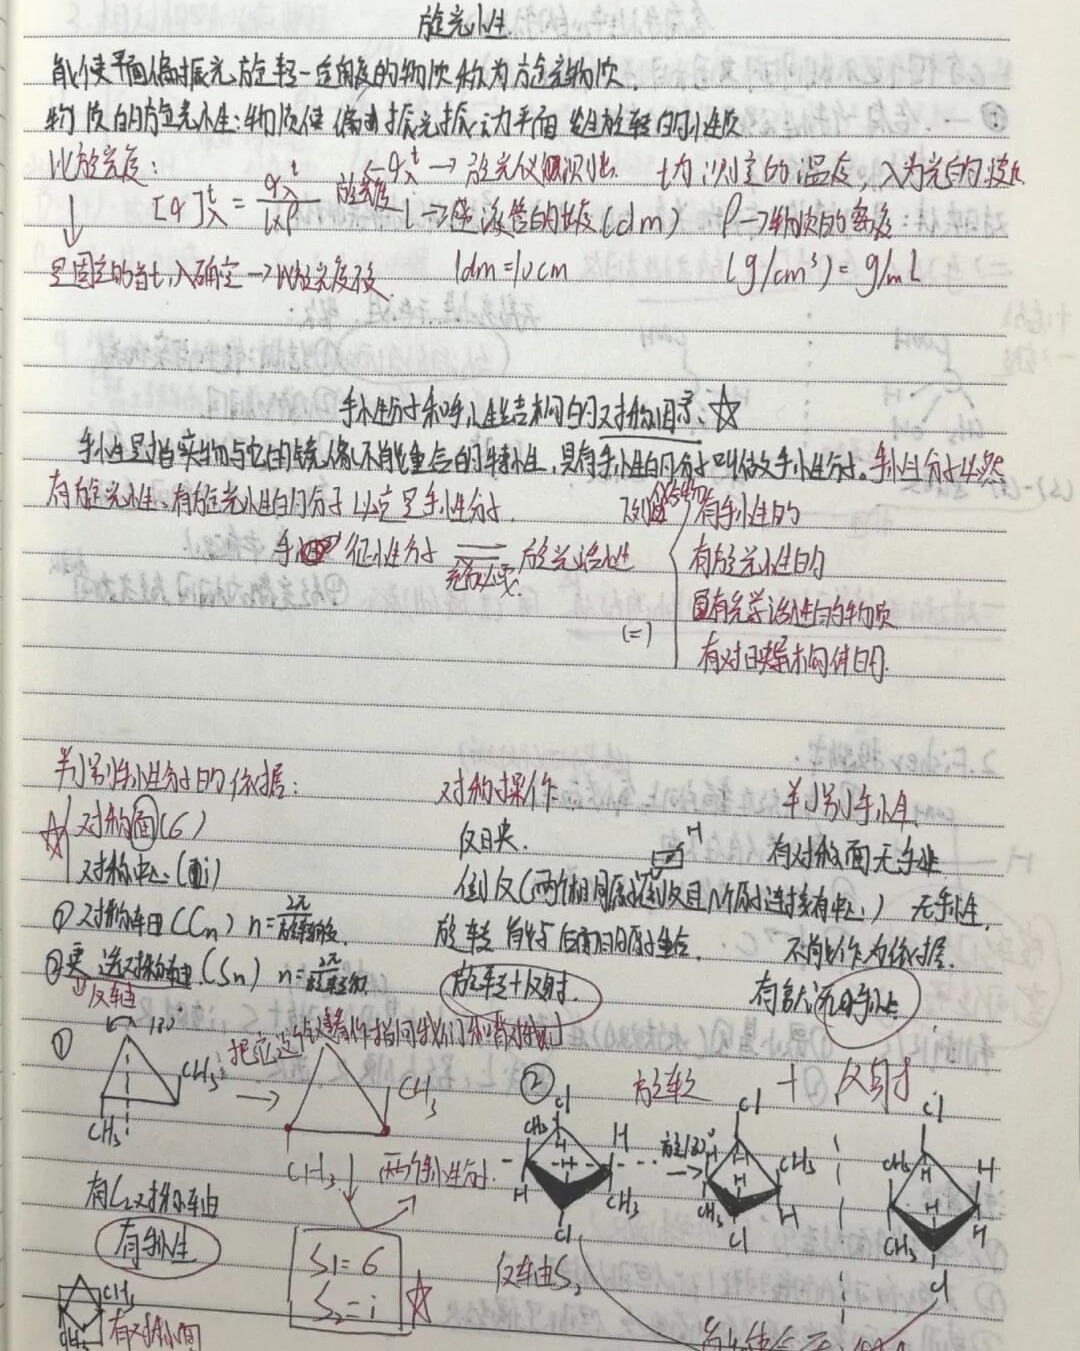 旋光性
能使平面偏振光旋转一定角度的物质称为旋光物质.
物质的旋光性:物质使偏振光振动平面发生旋转的性质
比旋光度:
[α]tλ = αtλ / l×ρ
旋光度 αtλ → 旋光仪测出. t为测定的温度, λ为光的波长
l → 盛液管的长度(dm) ρ→物质的密度
是固定的当t,λ确定→比旋光度不变
1dm=10cm (g/cm³)= g/mL
手性分子和手性结构的对称因素 ☆
手性是指实物与它的镜像不能重合的特性,具有手性的分子叫做手性分子。手性分子必然
有旋光性、有旋光性的分子必定是手性分子.
有手性的
手性分子 ⇌ 旋光活性
充分必要
有旋光性的
具有光学活性的物质
(=)
有对映异构体的.
判别手性分子的依据:
对称操作:
判别手性
☆ 对称面(σ)
反映.
有对称面无手性
对称中心(i)
倒反(两个相同原子倒反且 个原子连接有中心) 无手性.
① 对称轴(Cn) n=2π/旋转角度.
旋转 前后 原子重合.
不能作为依据.
② 更迭对称轴(Sn) n=2π/旋转角度
旋转+反射.
反轴
①
180°
CH₃
CH₃
CH₃
CH₃
两个手性分子.
有C₂对称轴
有手性
S₁=σ
S₂=i
☆
②
旋转 + 反射
Cl
Cl
Cl
CH₃
H
H
H
CH₃
Cl
旋180°
H
H
CH₃
CH₃
H
Cl
CH₃
H
H
H
CH₃
H
Cl
反轴S₂
CH₃
CH₃
有对称面